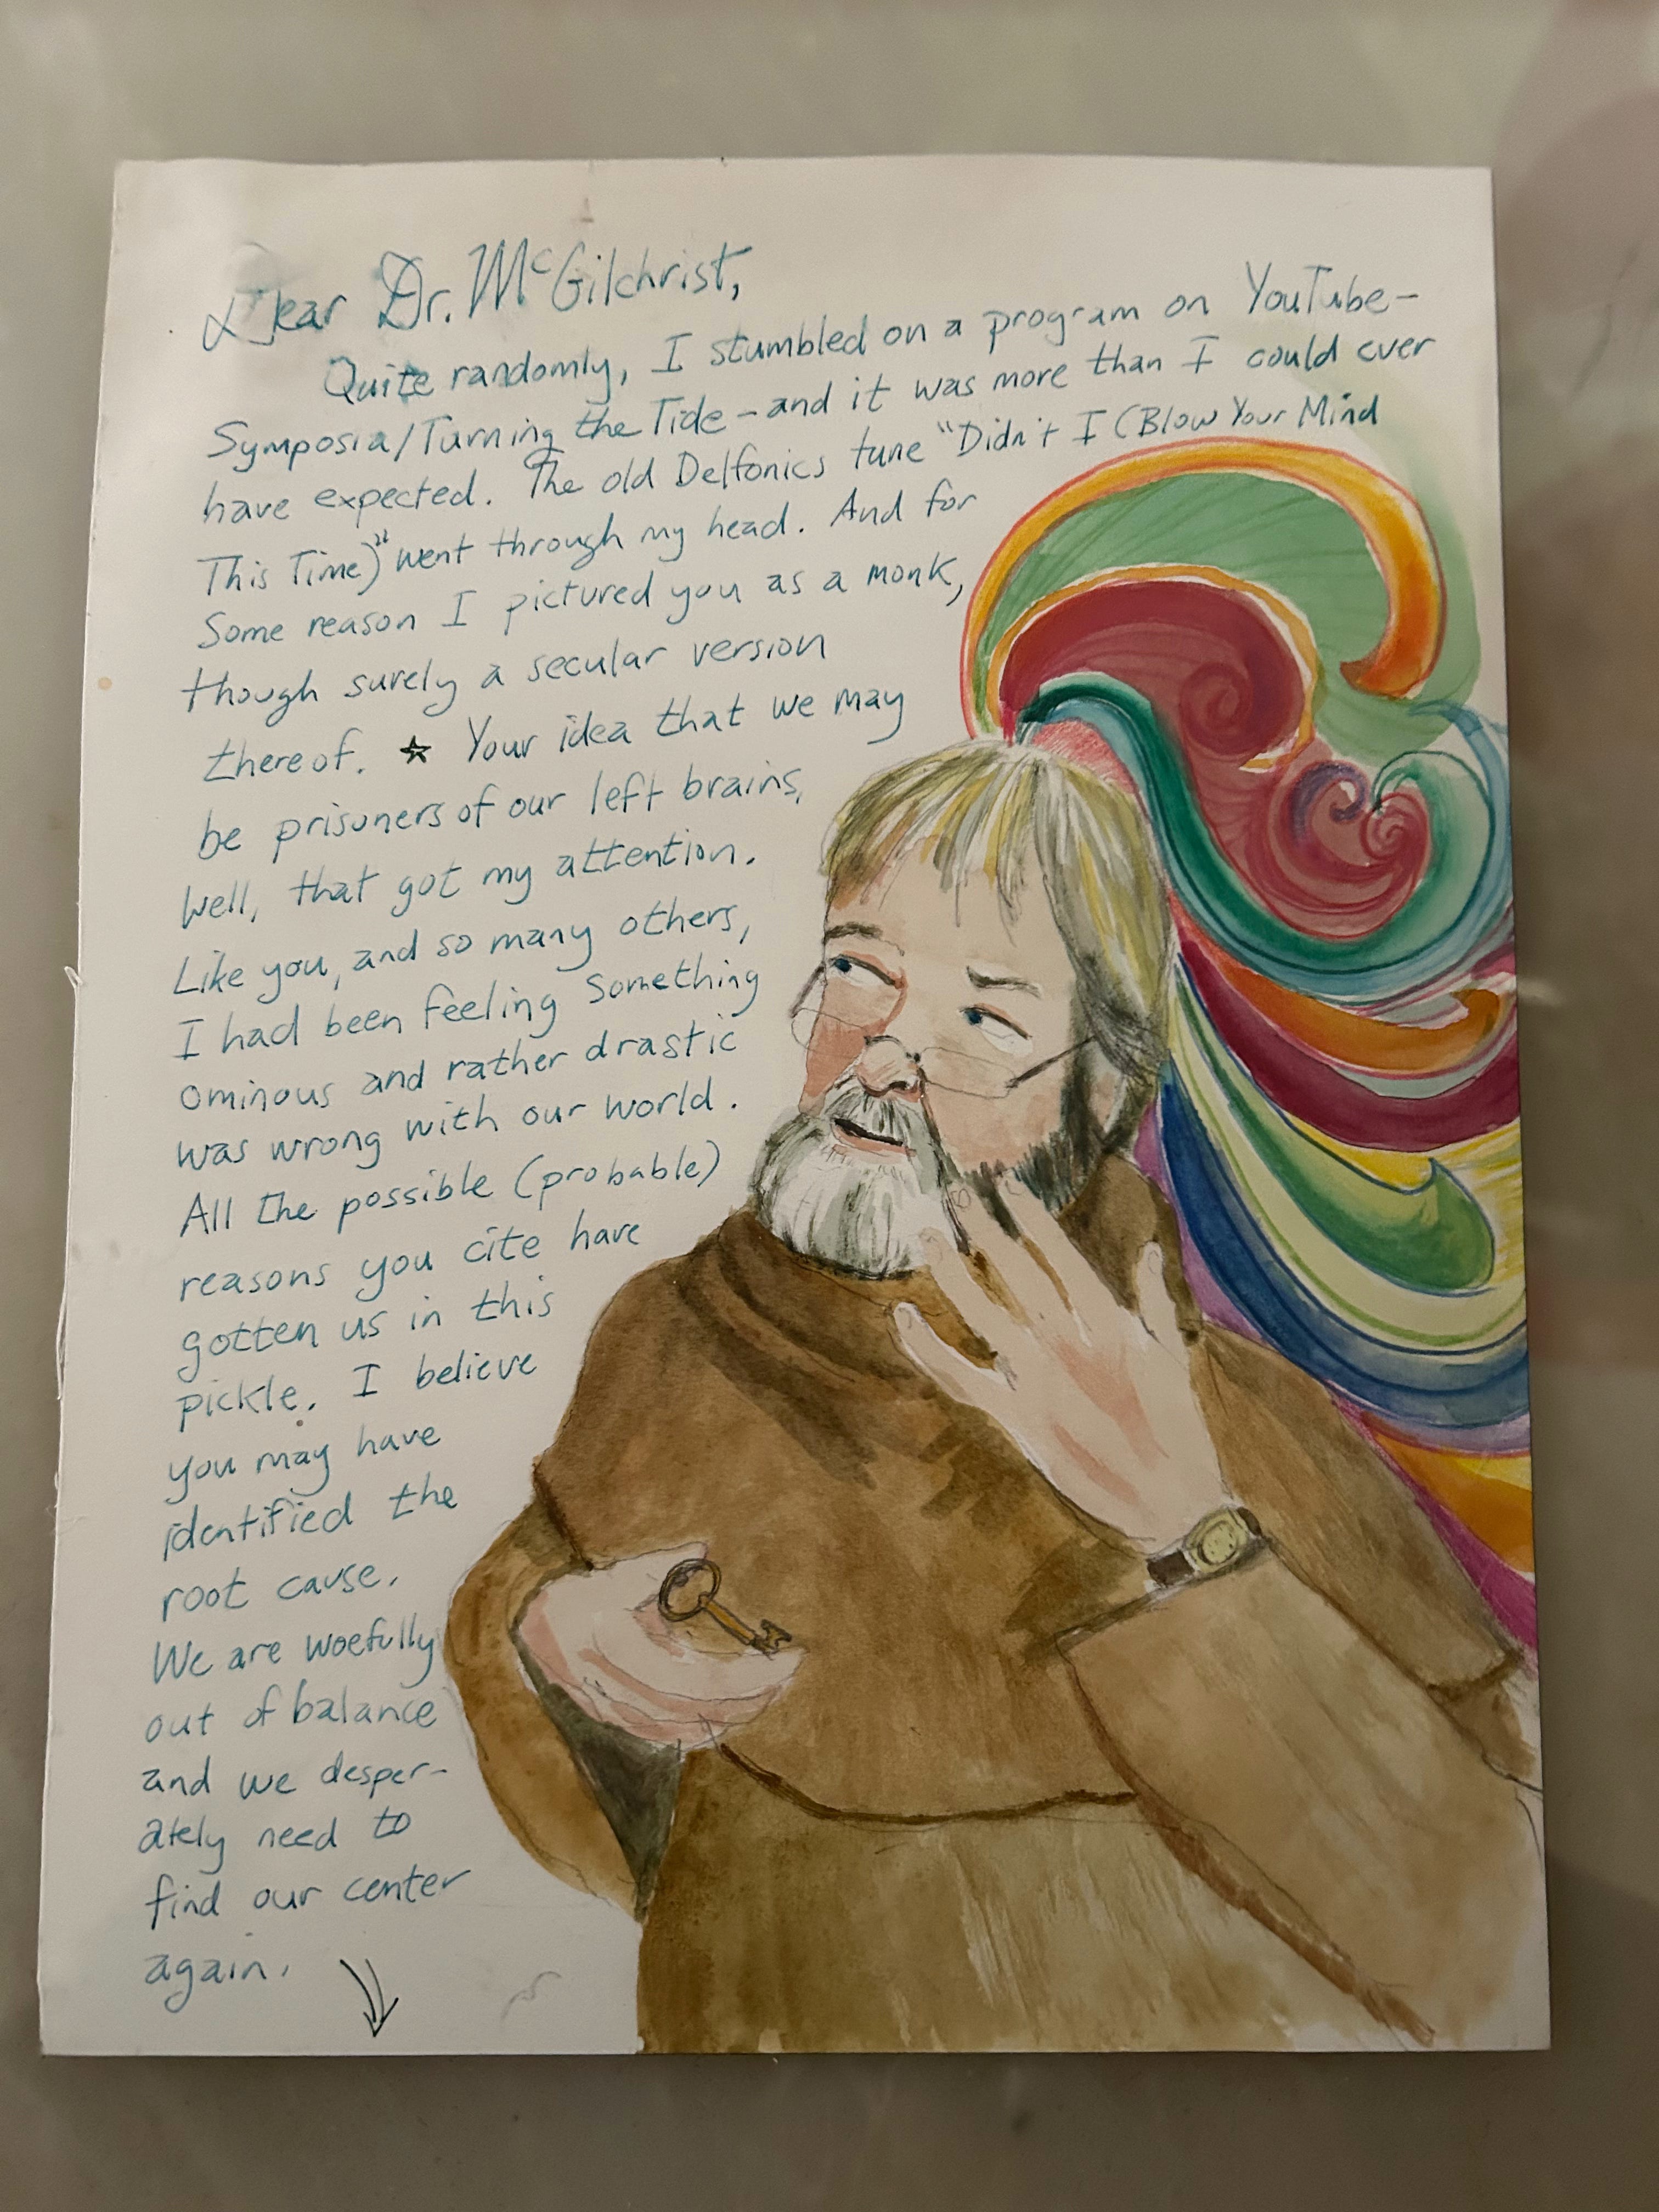 Dear Dr. McGilchrist,
Quite randomly, I stumbled on a program on YouTube-
Symposia/Turning the Tide - and it was more than I could ever
have expected. The old Delfonics tune "Didn't I (Blow Your Mind
This Time)" went through my head. And for
some reason I pictured you as a monk,
though surely a secular version
thereof. ☆ Your idea that we may
be prisoners of our left brains,
well, that got my attention.
Like you, and so many others,
I had been feeling something
ominous and rather drastic
was wrong with our world.
All the possible (probable)
reasons you cite have
gotten us in this
pickle. I believe
you may have
identified the
root cause.
We are woefully
out of balance
and we desper-
ately need to
find our center
again.